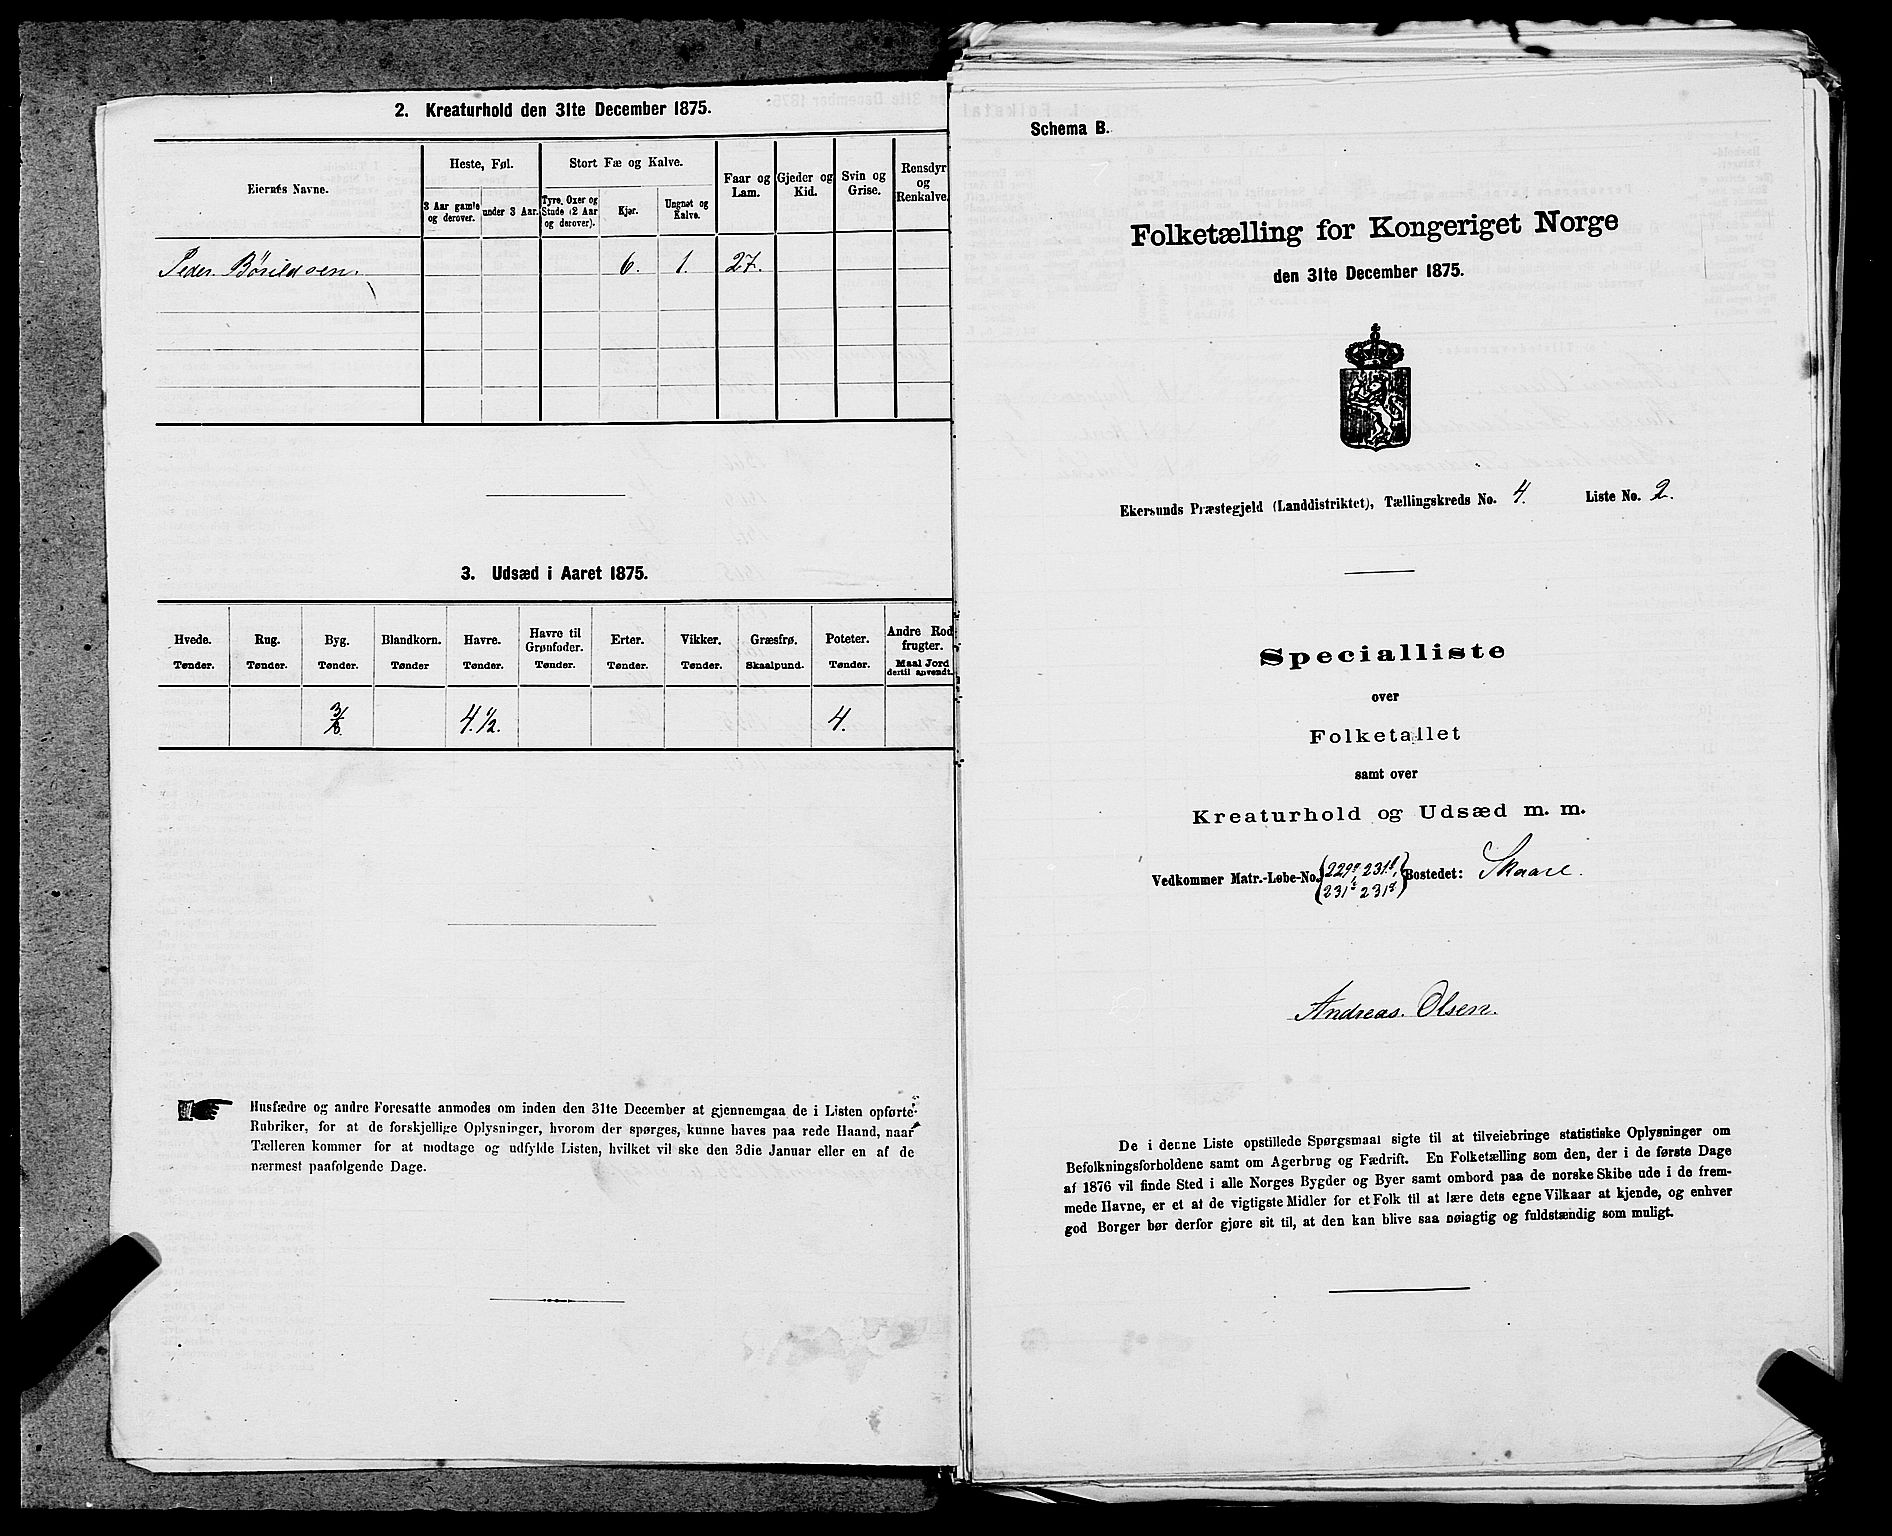 2. Kreaturhold den 31te December 1875.
Eiernes Navne.
Heste, Føl.
Stort Fæ og Kalve.
Faar og Lam.
Gjeder og Kid.
Svin og Grise.
Rensdyr og Renkalve.
3 Aar gamle og derover.
under 3 Aar.
Tyre, Oxer og Stude (2 Aar og derover).
Kjør.
Ungnøt og Kalve.
Peder Bårildsen. 6. 1. 27.
3. Udsæd i Aaret 1875.
Hvede. Rug. Byg. Blandkorn. Havre. Havre til Grønfoder. Erter. Vikker. Græsfrø. Poteter. Andre Rodfrugter.
Tønder. Tønder. Tønder. Tønder Tønder. Tønder. Tønder. Tønder. Skaalpund. Tønder. Maal Jord dertil anvendt.
3/8 4.1/2. 4.
Husfædre og andre Foresatte anmodes om inden den 31te December at gjennemgaa de i Listen opførte
Rubriker, for at de forskjellige Oplysninger, hvorom der spørges, kunne haves paa rede Haand, naar
Tælleren kommer for at modtage og udfylde Listen, hvilket vil ske den 3die Januar eller en af de
nærmest paafølgende Dage.
Schema B.
Folketælling for Kongeriget Norge
den 31te December 1875.
Ekersunds Præstegjeld (Landdistriktet), Tællingskreds No. 4. Liste No. 2.
Specialliste
over
Folketallet
samt over
Kreaturhold og Udsæd m. m.
Vedkommer Matr.-Løbe-No. Bostedet: Skaare.
Andreas Olsen.
De i denne Liste opstillede Spørgsmaal sigte til at tilveiebringe statistiske Oplysninger om
Befolkningsforholdene samt om Agerbrug og Fædrift. En Folketælling som den, der i de første Dage
af 1876 vil finde Sted i alle Norges Bygder og Byer samt ombord paa de norske Skibe ude i de frem-
mede Havne, er et af de vigtigste Midler for et Folk til at lære dets egne Vilkaar at kjende, og enhver
god Borger bør derfor gjøre sit til, at den kan blive saa nøiagtig og fuldstændig som muligt.